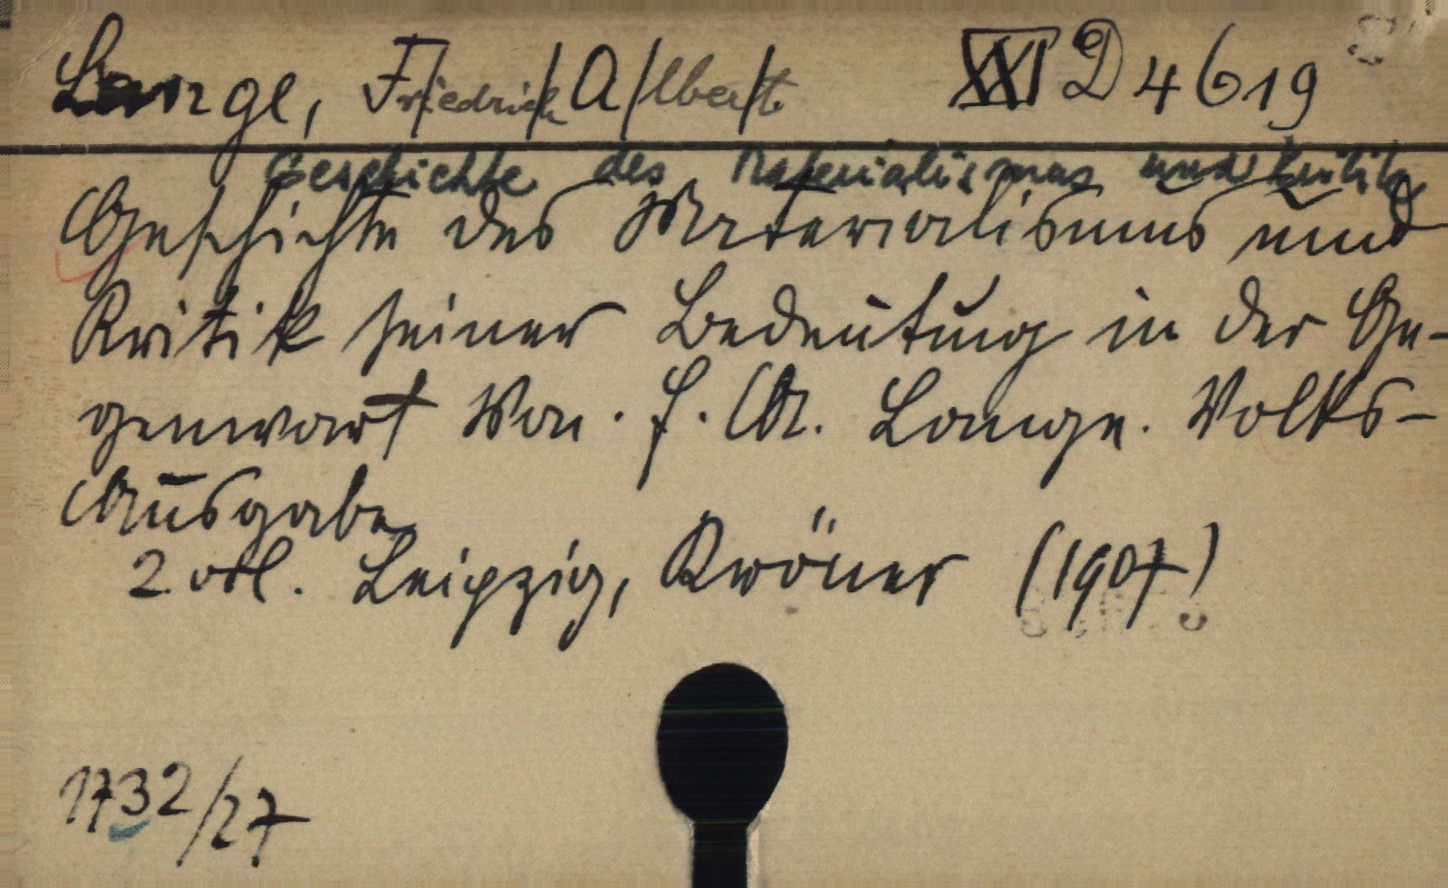 Lange, F/riedrich/ A/lbert/ XXI D 4619
Geschichte des Materialismus und Kritik
Geschichte des Materialismus und
Kritik seiner Bedeutung in der Ge-
genwart Von. F. A. Lange. Volks-
Ausgabe
2 vol. Leipzig, Kröner (1907)
1732/27